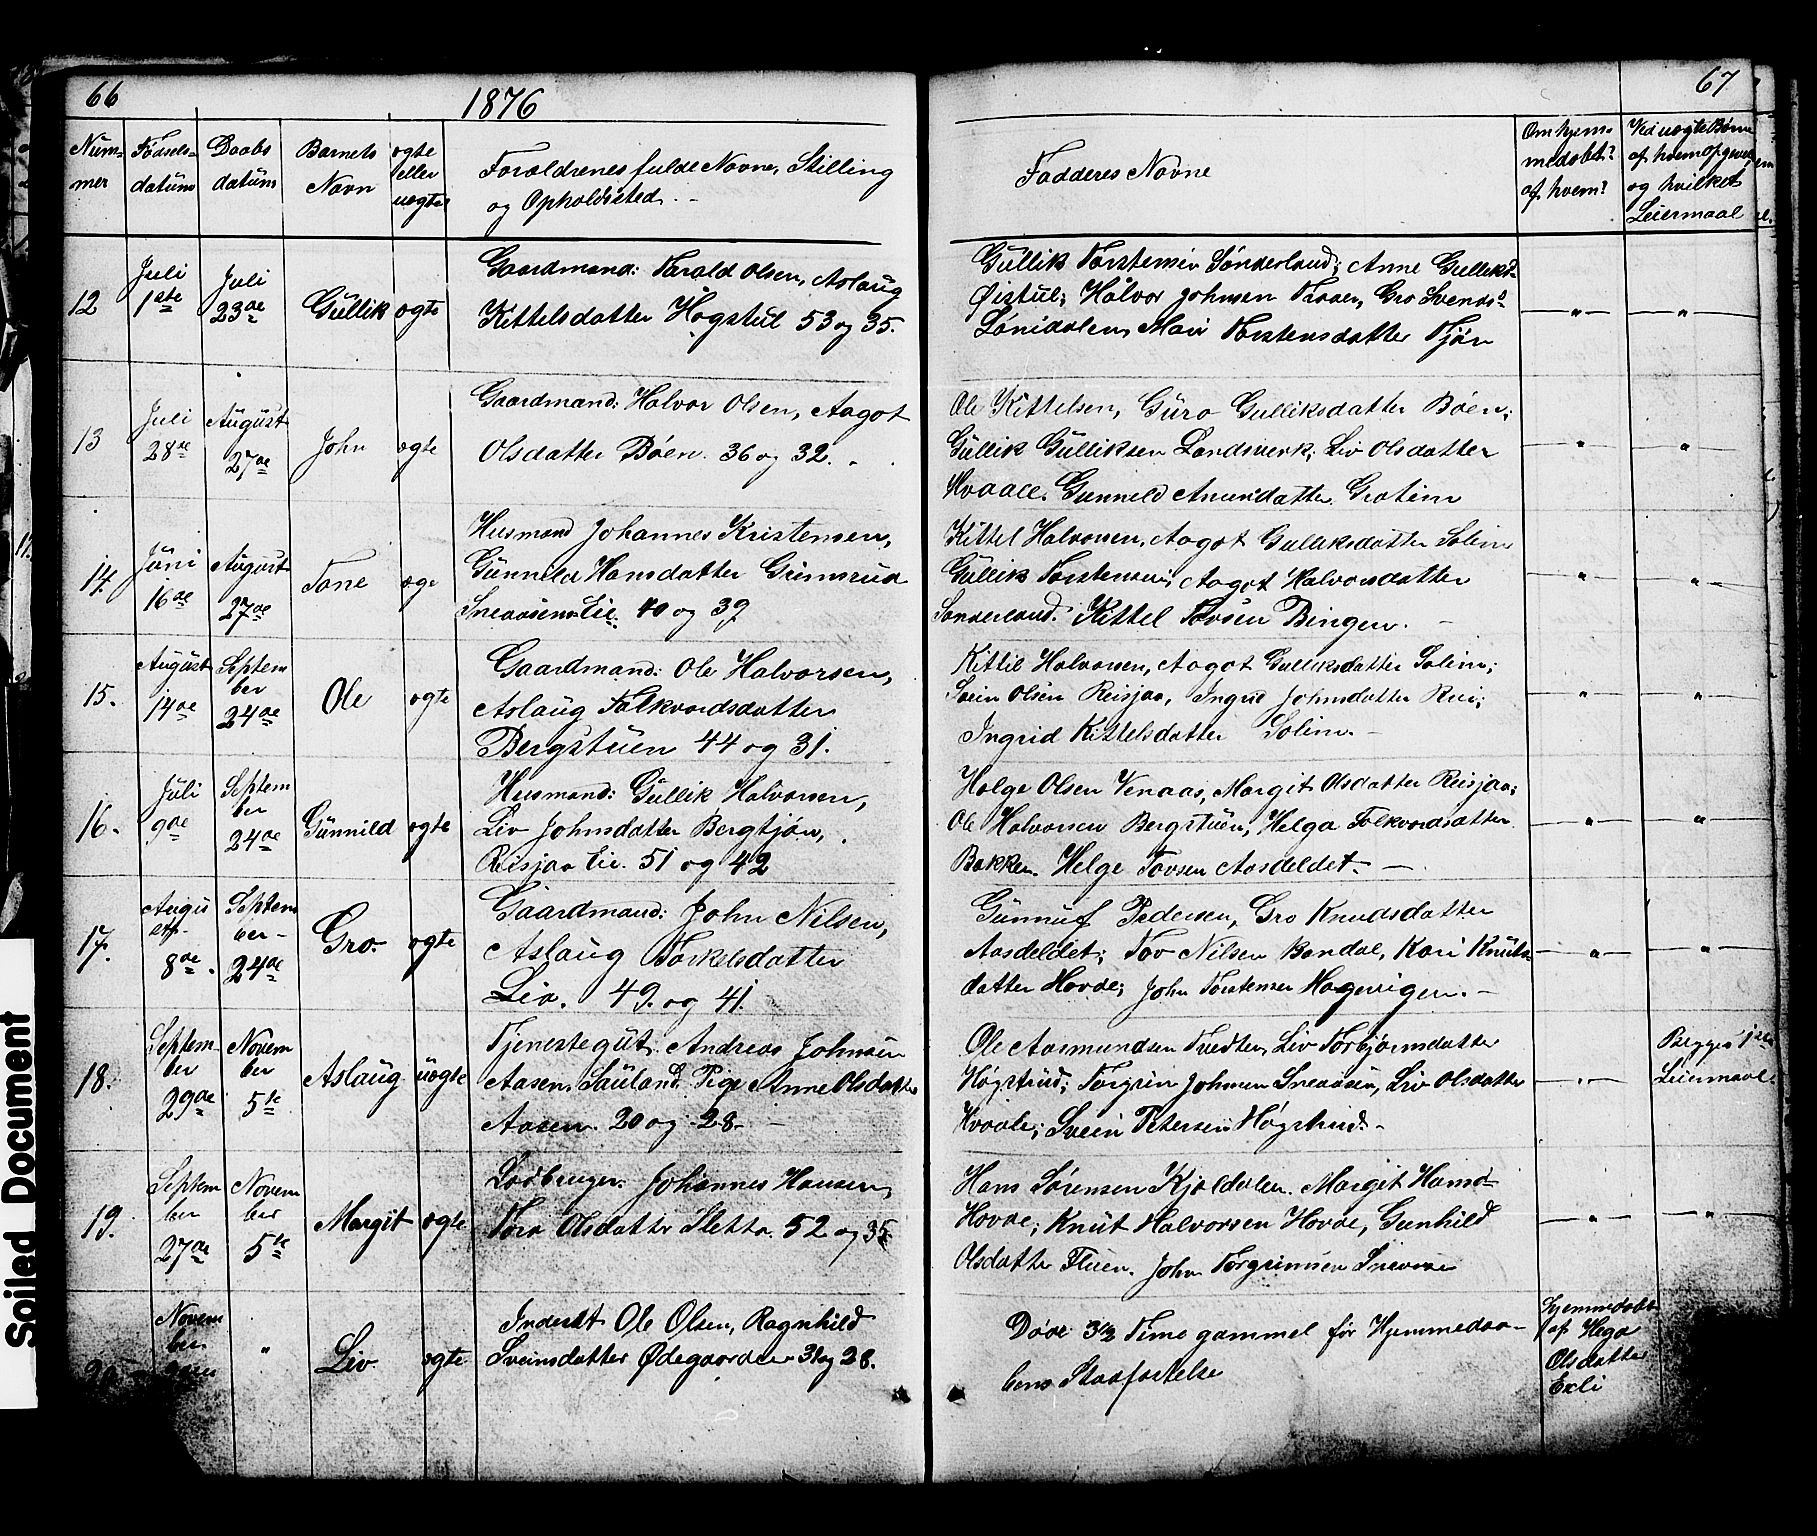 66
1876
67
Num-
mer
Fødsels-
datum
Daabs
datum
Barnets
Navn
ægte
eller
uægte
Forældrenes fulde Navne, Stilling
og Opholdssted.
Fadderes Navne
Om hjem-
medøbt?
af hvem?
Ved uægte Børn
af hvem opgivet,
og hvilket
Leiermaal
12
Juli
1ste
Juli
23de
Gullik
ægte
Gaardmand: Tarald Olsen, Aslaug
Kittelsdatter Høgstul 53 og 35.
Gullik Torstensen Sønderland; Anne Gulliksd
Øistul; Halvor Johnsen, Gro Svendsd
Lønidalen, Mari Torstensdatter Tjøn
13
Juli
28de
August
27de
John
ægte
Gaardmand: Halvor Olsen, Aagot
Olsdatter Bøen. 36 og 32.
Ole Kittelsen, Guro Gulliksdatter Bøen;
Gullik Gulliksen Landsverk; Liv Olsdatter
Hvaale. Gunnild Amundatter Grotim
14.
Juni
16de
August
27de
Tone
ægte
Husmand Johannes Kristensen,
Gunnild Hansdatter Grimsrud
Sneaasen Eie. 40 og 39
Kittel Halvorsen, Aagot Gulliksdatter Solim
Gullik Torstensen, Aagot Halvorsdatter
Sønderland. Kittel Tovsen Bingen.
15.
August
14de
Septem
ber
24de
Ole
ægte
Gaardmand: Ole Halvorsen,
Aslaug Folkvordsdatter
Bergstuen 44 og 31.
Kittil Halvorsen, Aagot Gulliksdatter Solim;
Svein Olsen Reisjaa, Ingrid Johnsdatter Rui;
Ingrid Kittelsdatter Solim.
16.
Juli
9de
Septem
ber
24de
Gunnild
ægte
Husmand: Gullik Halvorsen,
Liv Johnsdatter Bergtjøn,
Reisjaa Eie. 51 og 42
Helge Olsen Venaas, Margit Olsdatter Reisjaa;
Ole Halvorsen Bergstuen, Helga Folkvordsdatter
Bakken. Helge Tovsen Aasdeldet.
17.
Augu
st
8de
Septem
ber
24de
Gro.
ægte
Gaardmand: John Nilsen,
Aslaug Torkelsdatter
Lia. 49. og 41.
Gunnuf Pedersen, Gro Knudsdatter
Aasdeldet; Tov Nilsen Bondal, Kari Knuts-
datter Hovde; John Torstensen Hagenigen.
18.
Septem-
ber
29de
Novem
ber
5te
Aslaug
uægte
Tjenestegut. Andreas Johnsen
Aasen, Sauland, Pige Anne Olsdatter
Aasen. 20 og 28.
Ole Aasmundsen Tvedten, Liv Torbjørnsdatter
Høgstrud; Torgrin Johnsen Sneaasen, Liv Olsdatter
Hvaale; Svein Petersen Høgstrud.
Begges 1ste
Leiermaal.
19.
Septem
ber
27de
Novem
ber
5te
Margit
ægte
Lodbruger. Johannes Hansen,
Tora Olsdatter Sletta. 52 og 35
Hans Sørensen Kjøldalen. Margit Hansd
Hovde; Knut Halvorsen Hovde, Gunhild
Olsdatter Fluen. John Torgrimsen
20
Novem
ber
Liv
ægte
Inderst Ole Olsen, Ragnhild
Sveinsdatter Ødegaarden 31 og 28.
Døde 3½ Time gammel før Hjemmedaa-
bens Stadfæstelse
Hjemmedøbt
af Hega
Olsdatter
Exli
Soiled Document